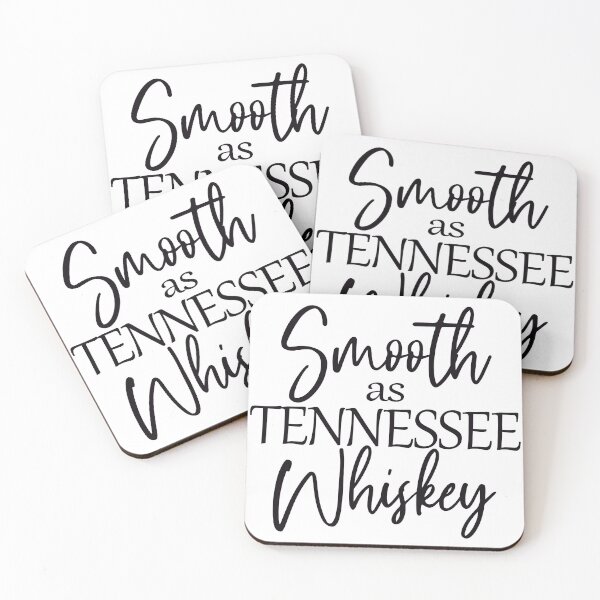 Smooth
as
TENNESSEE
Smooth
as
TENNESSEE
Whiskey
Smooth
as
TENNESSEE
Whisk
Smooth
as
TENNESSEE
Whiskey